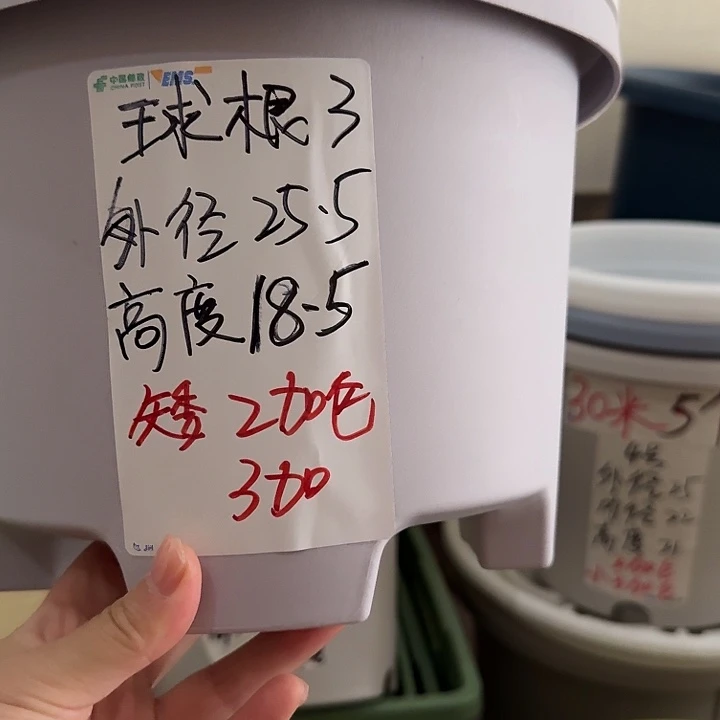 中国邮政
CHINA POST
EMS
球根3
外径25.5
高度18.5
矮2加仑
3加
30米5个
外径25
内径22
高度21